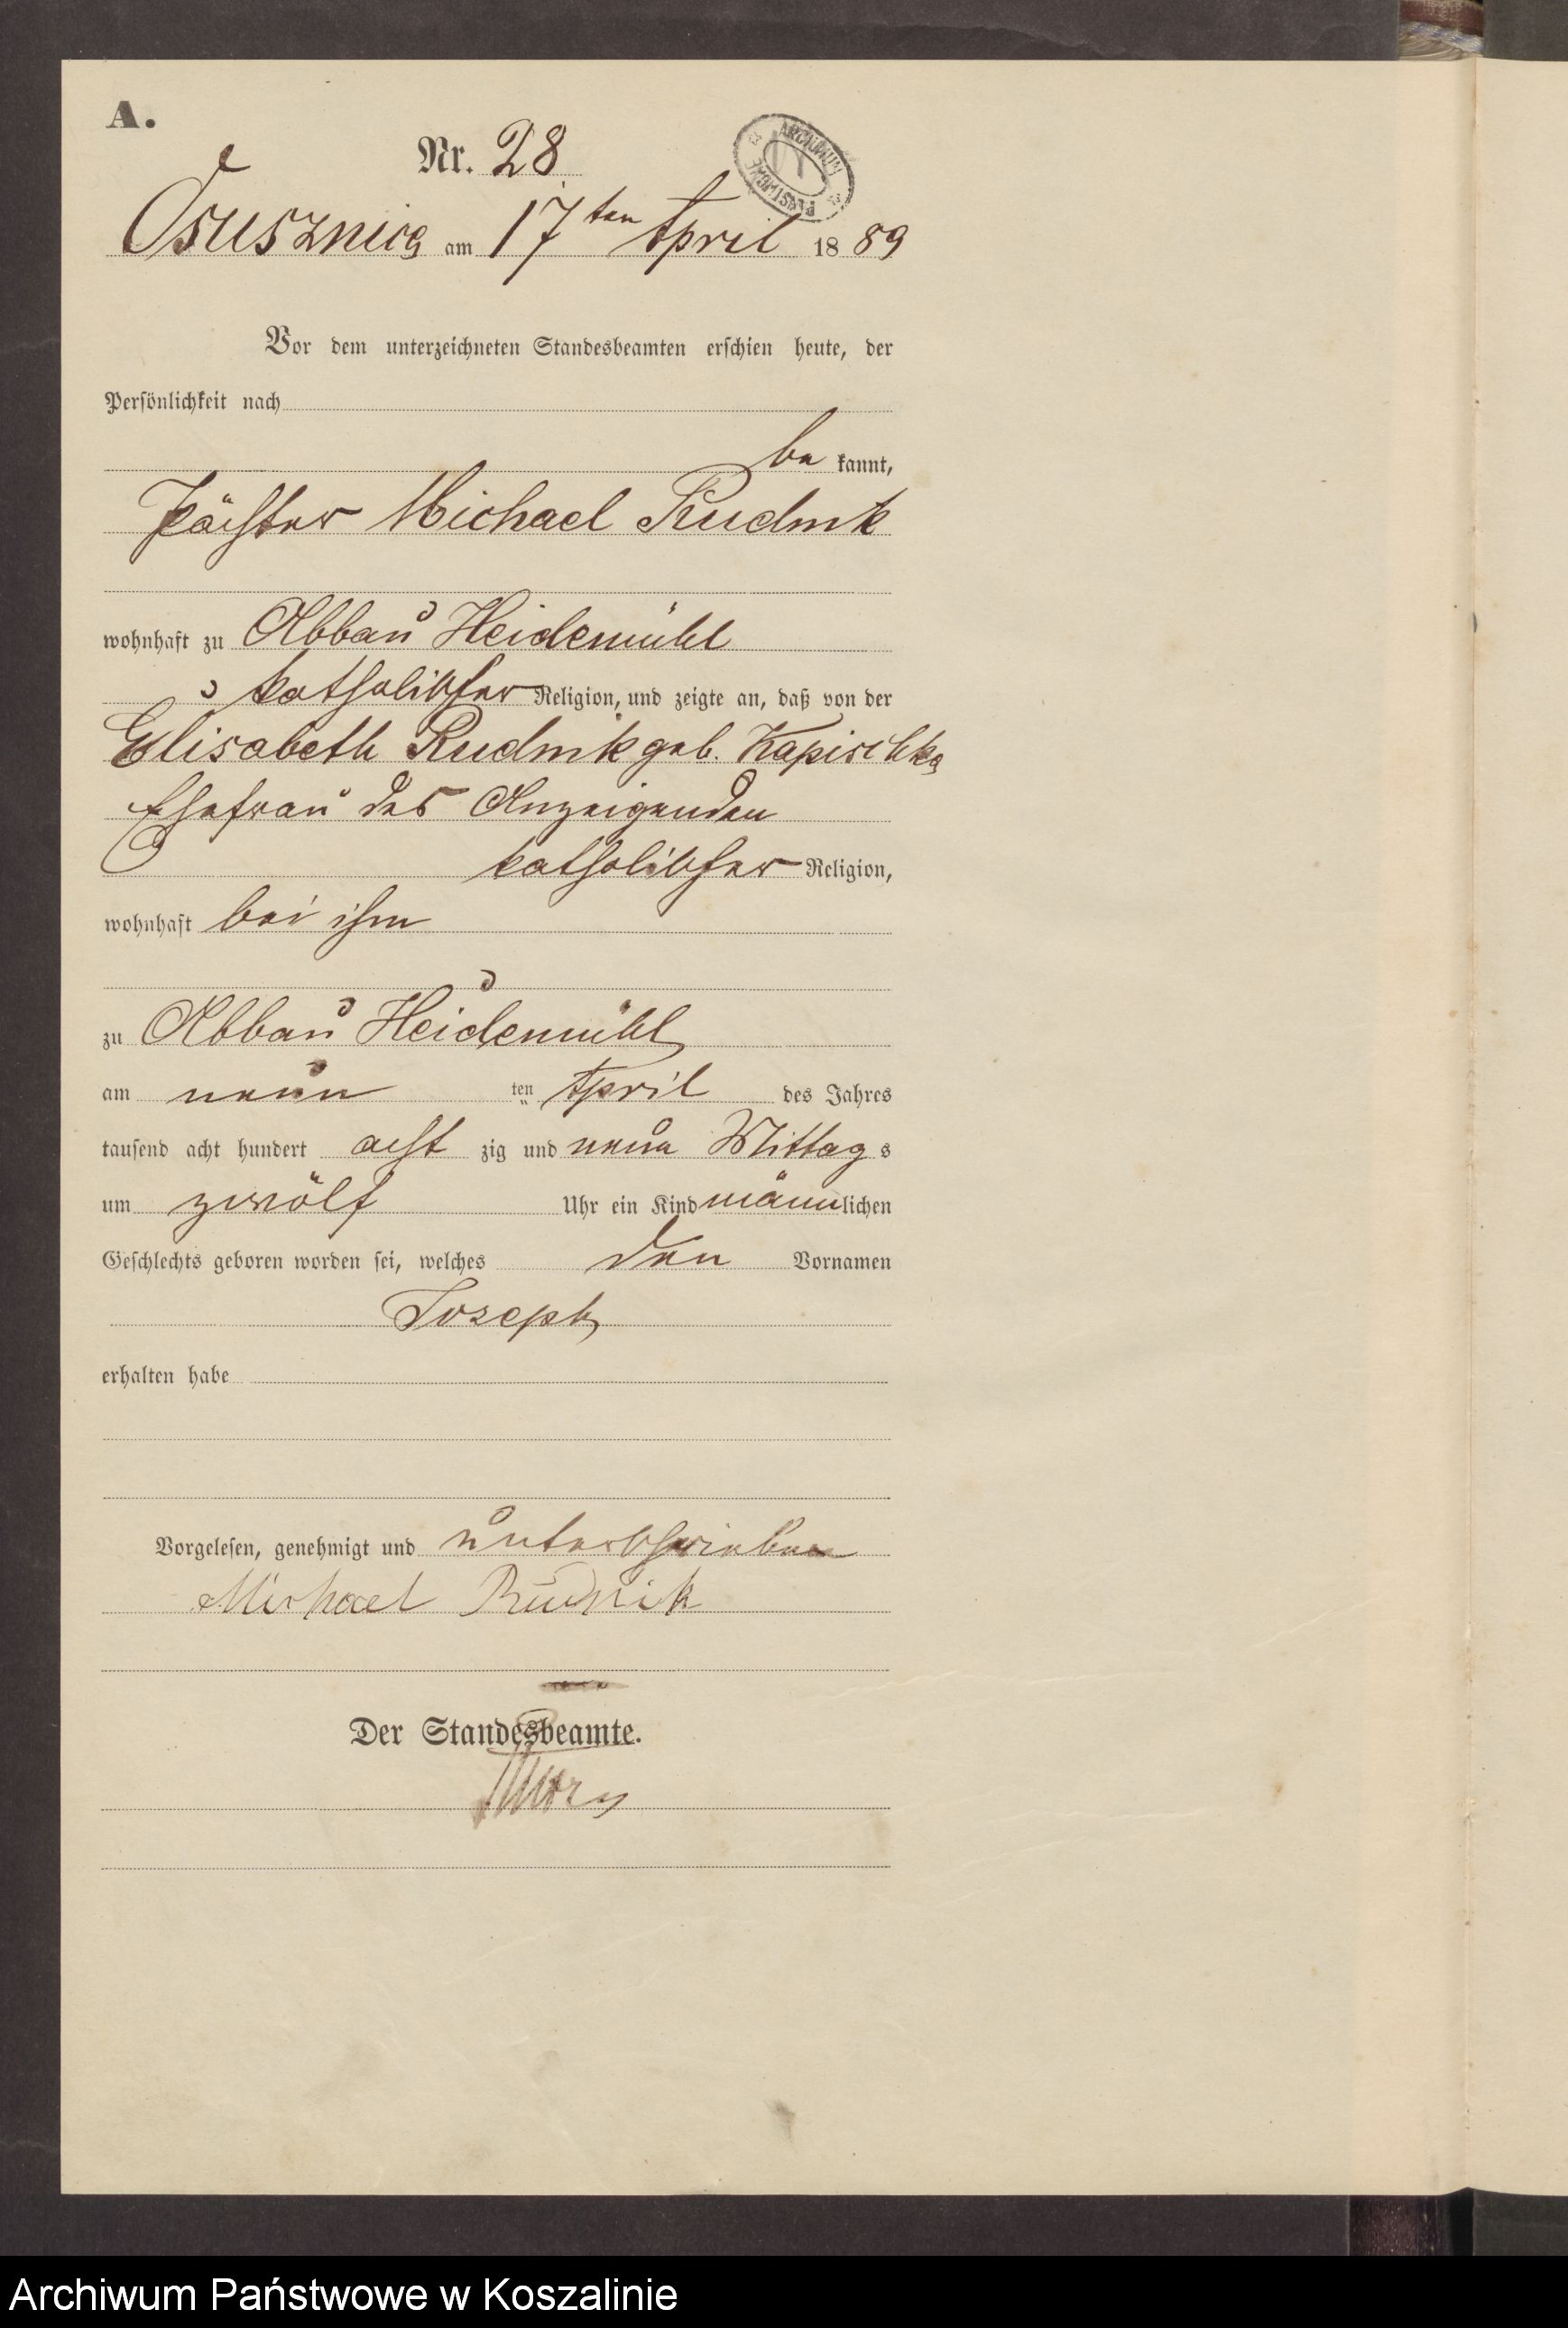 A.
Nr. 28
ARCHIWUM PAŃSTWOWE
Osusznica am 17ten April 1889
Vor dem unterzeichneten Standesbeamten erschien heute, der
Persönlichkeit nach
be kannt,
Pächter Michael Rudnik
wohnhaft zu Abbau Heidemühl
katholischer Religion, und zeigte an, daß von der
Elisabeth Rudnik geb. Kapischka
Ehefrau des Anzeigenden
katholischer Religion,
wohnhaft bei ihm
zu Abbau Heidemühl
am neun ten April des Jahres
tausend acht hundert acht zig und neun Mittags
um zwölf Uhr ein Kind männlichen
Geschlechts geboren worden sei, welches den Vornamen
Joseph
erhalten habe
Vorgelesen, genehmigt und unterschrieben
Michael Rudnik
Der Standesbeamte.
Archiwum Państwowe w Koszalinie